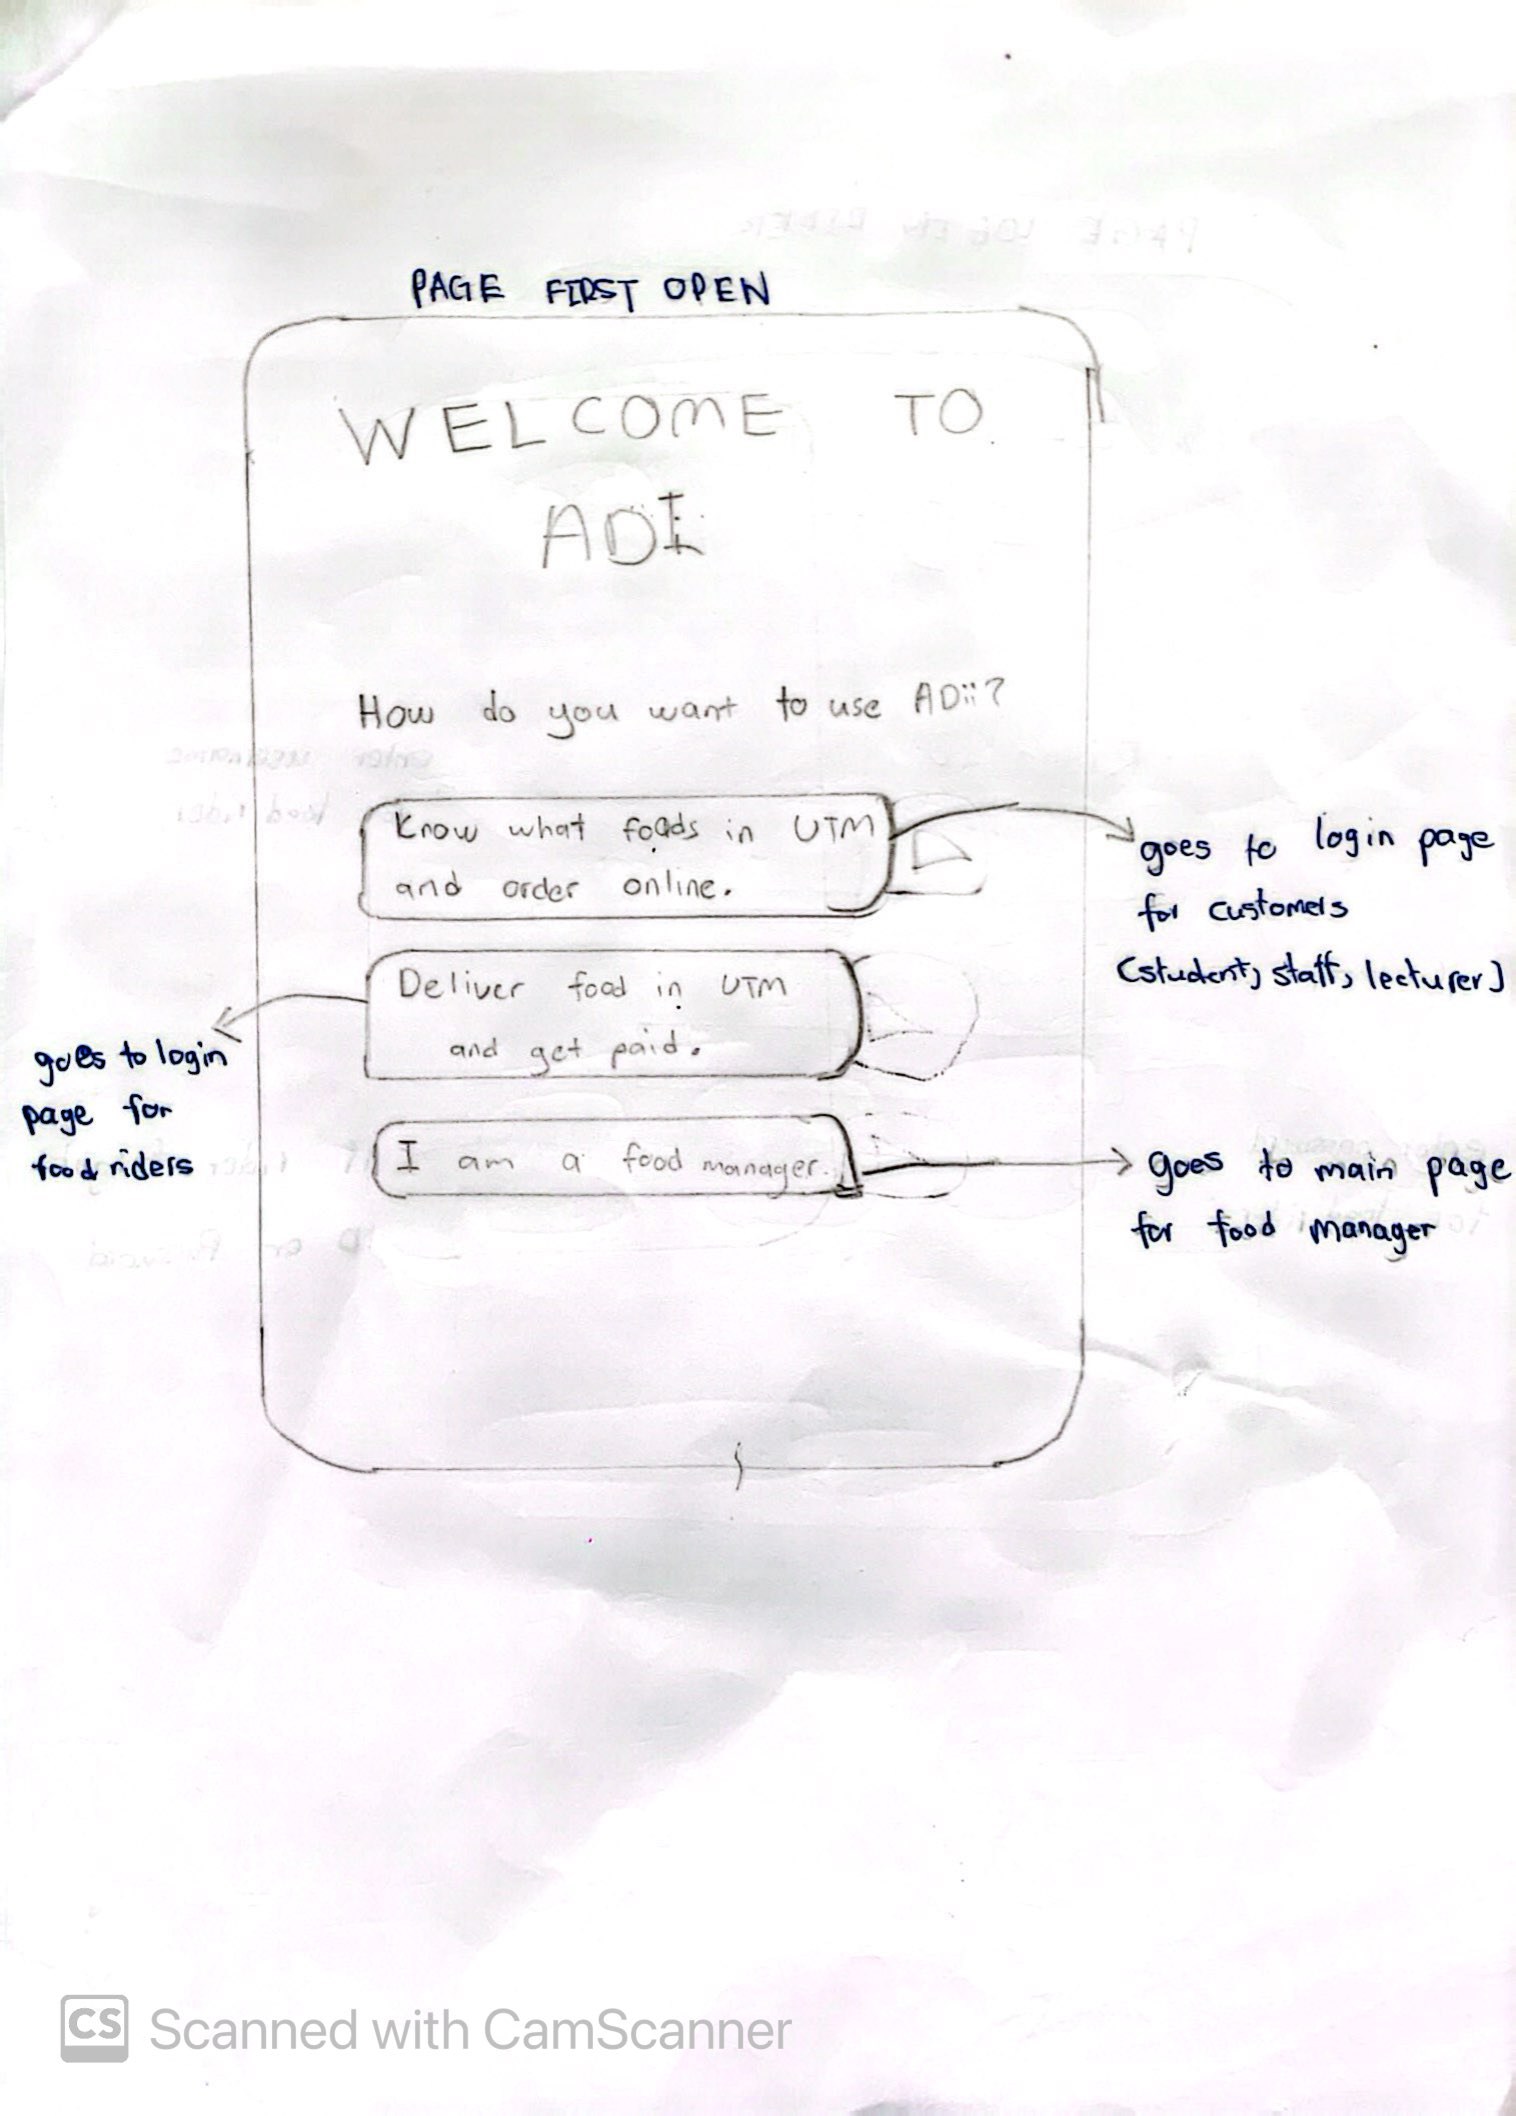 PAGE FIRST OPEN
WELCOME TO
ADI
How do you want to use ADii?
Know what foods in UTM
and order online.
goes to login page
for customers
(student, staff, lecturer)
Deliver food in UTM
and get paid.
goes to login
page for
food riders
I am a food manager.
goes to main page
for food manager
CS Scanned with CamScanner